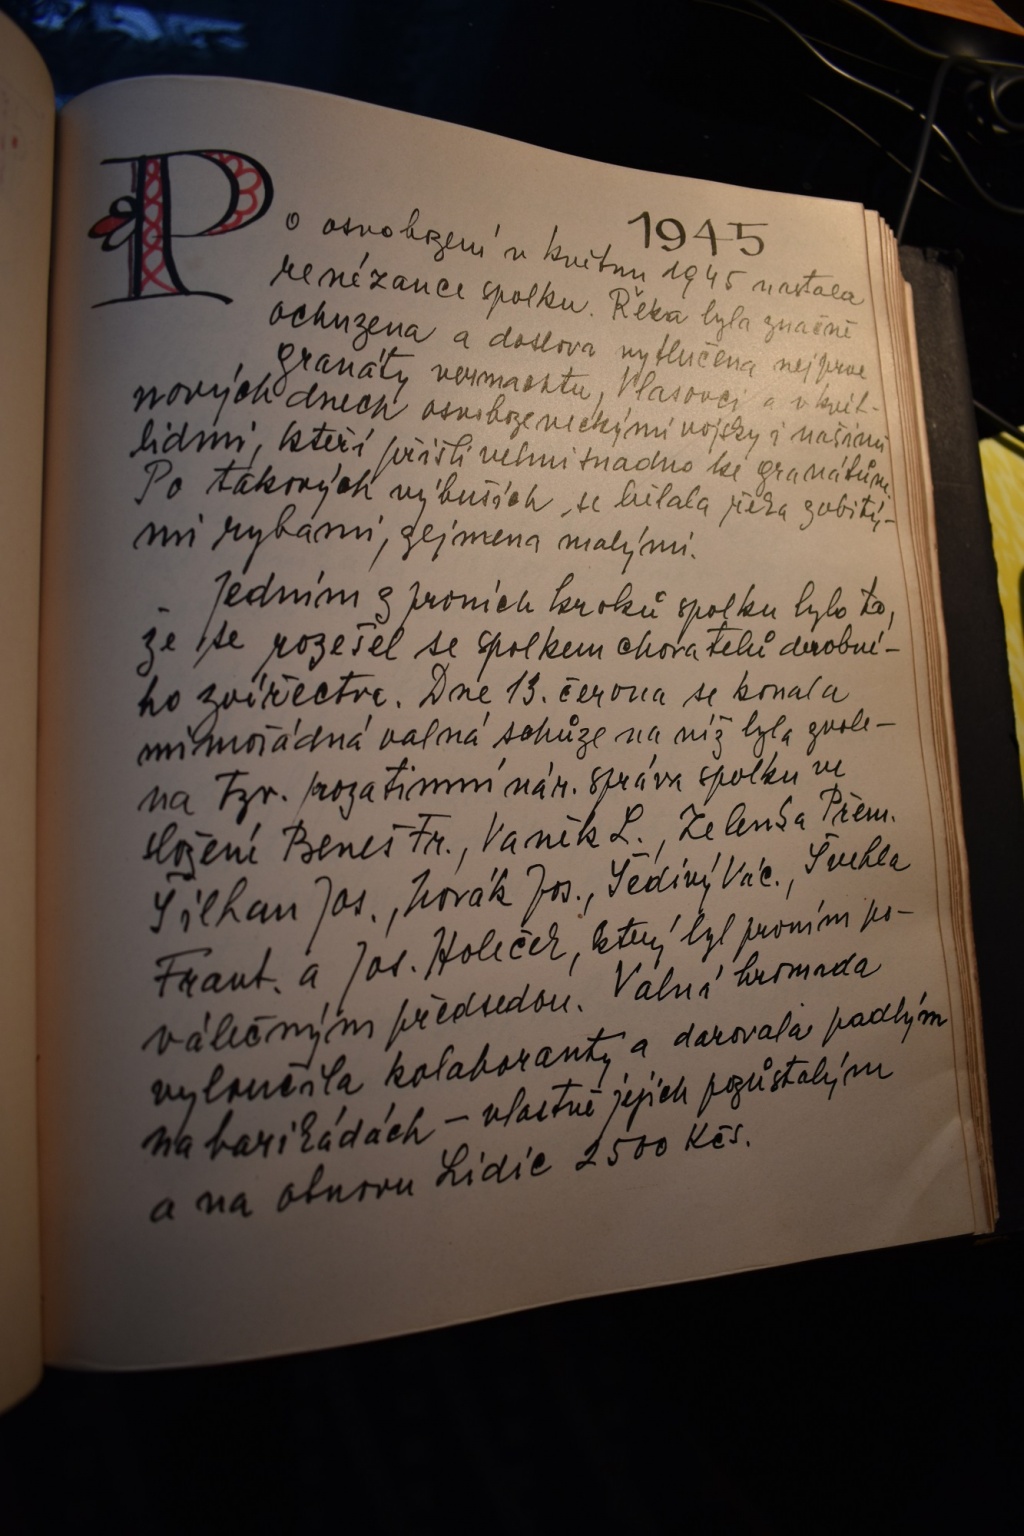 1945
Po osvobození v květnu 1945 nastala
renézance spolku. Řeka byla značně
ochuzena a doslova vytlučena nejprve
granáty vermachtu, Vlasovci a v květ-
nových dnech osvobozeneckými vojsky i našimi
lidmi, kteří přišli velmi snadno ke granátům.
Po takových výbuších se bělala řeka zabitý-
mi rybami, zejmena malými.
Jedním z prvních kroků spolku bylo to,
že se rozešel se spolkem chovatelů drobné-
ho zvířectva. Dne 13. června se konala
mimořádná valná schůze na níž byla zvole-
na tzv. prozatimní nár. správa spolku ve
složení Beneš Fr., Vaněk L., Zelenka Přem.
Šilhan Jos., Novák Jos., Šedivý Vác., Švehla
Frant. a Jos. Holeček, který byl prvním po-
válečným předsedou. Valná hromada
vyloučila kolaboranty a darovala padlým
na barikádách – vlastně jejich pozůstalým
a na obnovu Lidic 2500 Kčs.